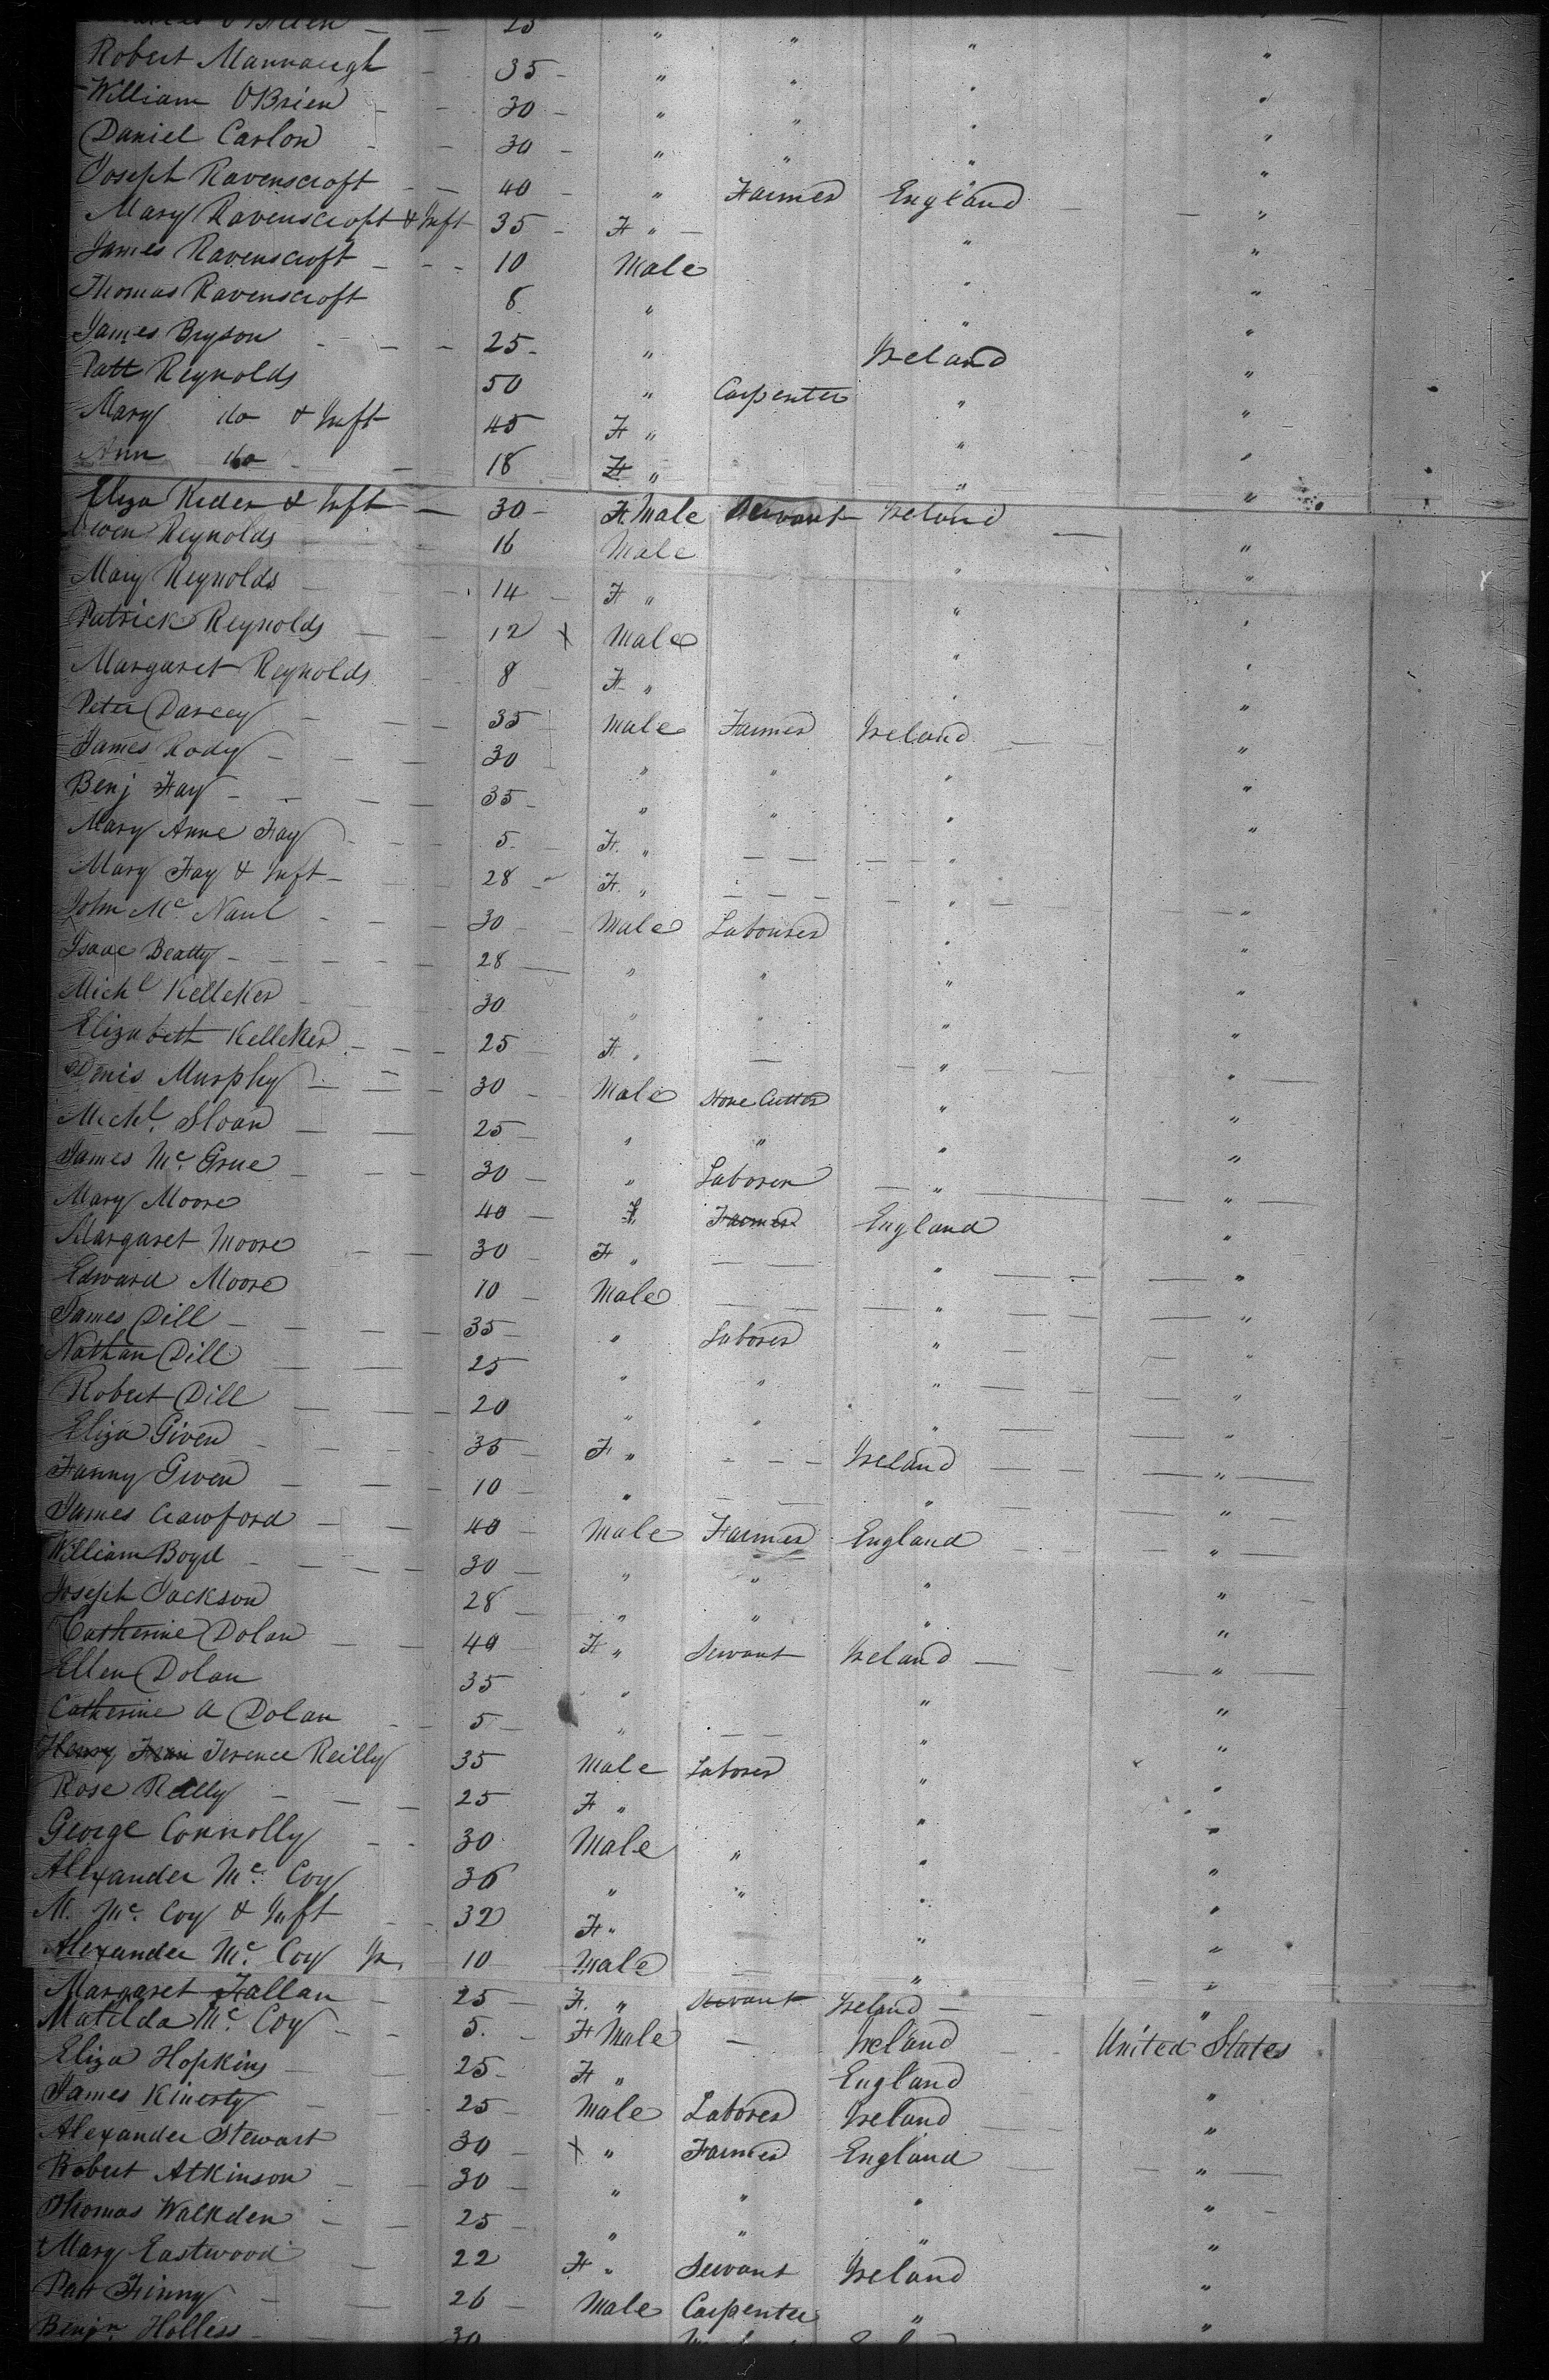 OBrien — — 25 " " " "
Robert Mannaugh - 35 - " " " "
William OBrien - - 30 - " " " "
Daniel Carlon - - 30 - " " " "
Joseph Ravenscroft - - 40 - " Farmer England - - "
Mary Ravenscroft & Inft 35 - F " - " "
James Ravenscroft - - - 10 Male " "
Thomas Ravenscroft 8 " " "
James Bryson - - - 25 - " Ireland "
Patt Reynolds 50 " Carpenter " "
Mary do & Inft 45 F " " "
Ann do - - 18 F " " "
Eliza Rider & Inft - 30 - F Male Servant Ireland — "
Owen Reynolds 16 Male " "
Mary Reynolds - - 14 - F " " "
Patrick Reynolds - - 12 x Male " "
Margaret Reynolds 8 - F " " "
Peter Darcey - - 35 Male Farmer Ireland — "
James Rody - - 30 " " " "
Benj Fay - - - - 35 - " " " "
Mary Anne Fay - - - 5 - F. " — — — - " "
Mary Fay & Inft - 28 - F. " - - - - " - - - "
John Mc. Naul - - - 30 - - Male Labourer " "
Isaac Beatty - - - - - 28 — " " " "
Michl Kelleker 30 " " " "
Elizabeth Kelleker - - - 25 - F " — " "
Denis Murphy - - - 30 - Male Stone Cutter " "
Michl. Sloan — — 25 - " " " "
James Mc. Grue - - - 30 - " Laborer — " — — "
Mary Moore 40 - F. Farmer England "
Margaret Moore - - 30 - F " — — " — — — "
Edward Moore 10 - Male — — — " — — "
James Dill - - - - 35 - " Laborer " "
Nathan Dill — — 25 " " " "
Robert Dill — — — 20 " " " "
Eliza Given - - - - 35 - F " - - - Ireland — — — " —
Fanny Given - - - 10 - " — - " — "
James Crawford - - - 40 - Male Farmer England - - - "
William Boyd - - - - 30 - " " " "
Joseph Jackson 28 - " " " "
Catherine Dolan - - 40 - F " Servant Ireland — - — " —
Ellen Dolan 35 " " "
Catherine A Dolan - - 5 - " — — " "
Terence Reilly 35 Male Laborer " "
Rose Reilly - - - 25 F " " "
George Connolly - - 30 Male " " "
Alexander Mc. Coy 36 " " " "
M. Mc. Coy & Inft - - 32 F " " "
Alexander Mc. Coy Jr. 10 Male — " "
Margaret Fallan - 25 - F. " Servant Ireland — - "
Matilda Mc. Coy - - 5. - F Male — Ireland - - United States
Eliza Hopkins - 25 - F " England "
James Kinerty - - 25 Male Laborer Ireland - "
Alexander Stewart 30 - x " Farmer England — — " —
Robert Atkinson - - 30 - " " " "
Thomas Walkden - - 25 - " " " "
Mary Eastwood - 22 F " Servant Ireland "
Patt Finny - - 26 - Male Carpenter " "
Benjn. Holless - - 30